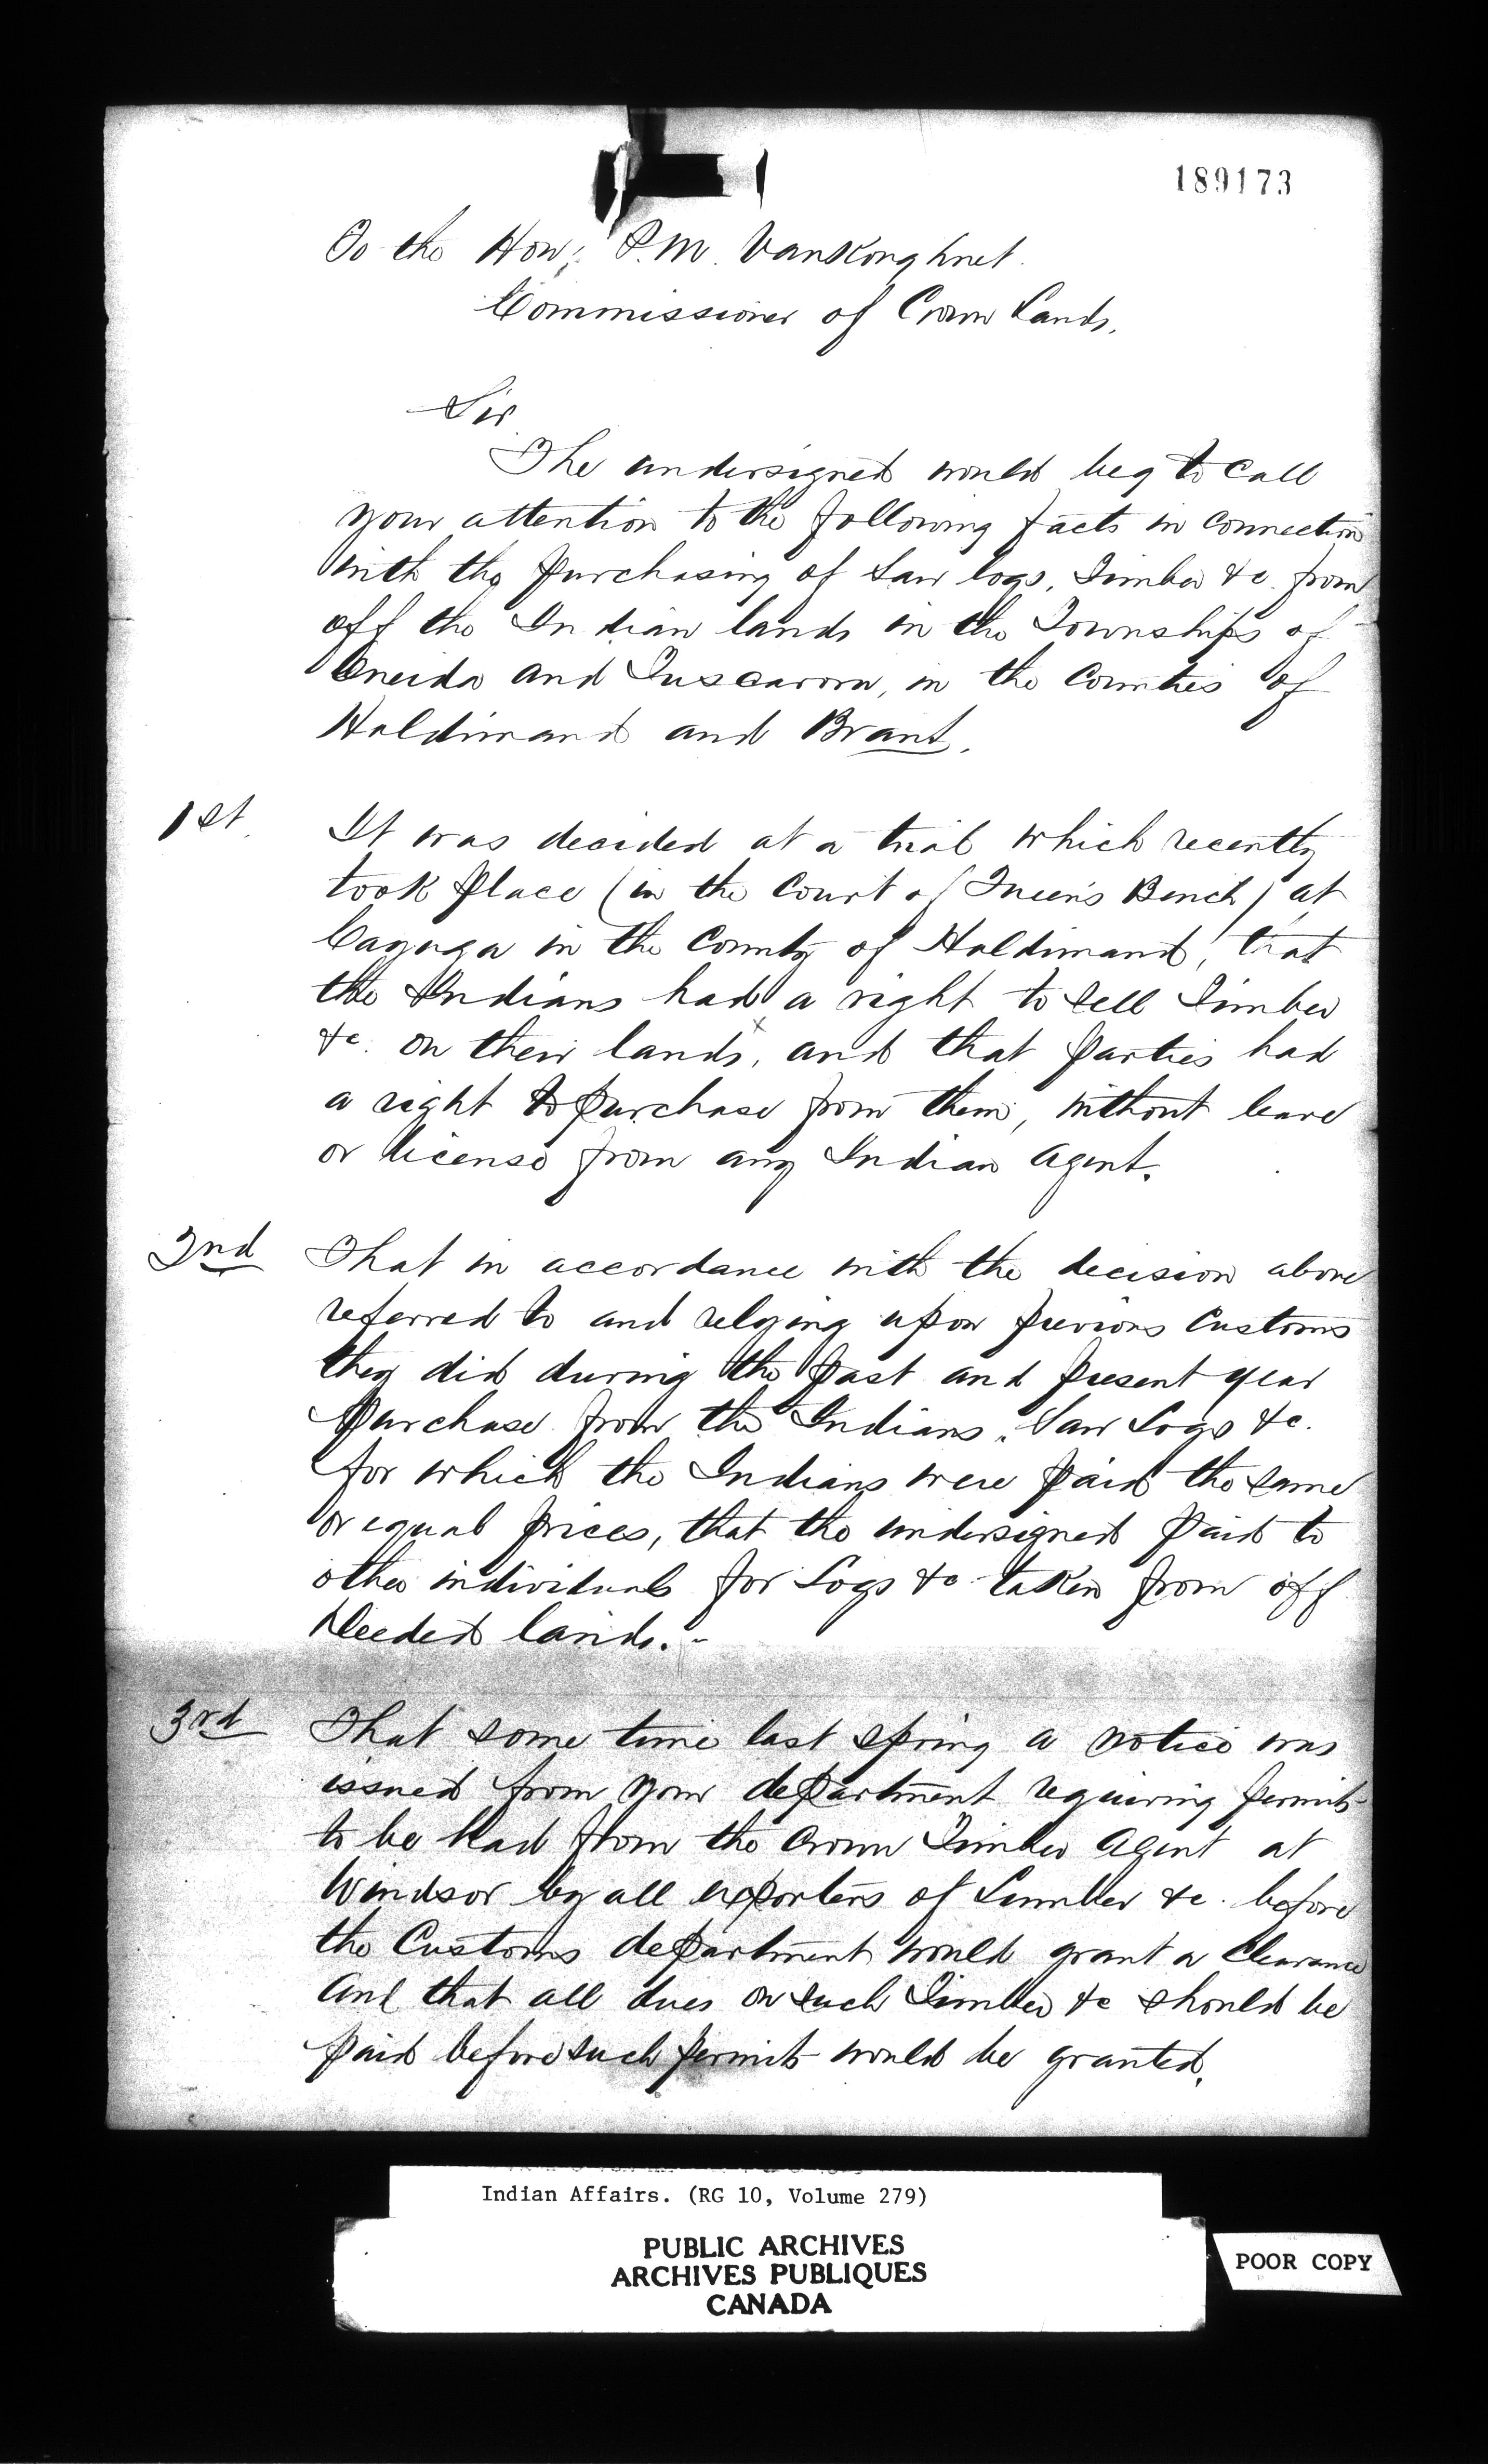 189173
To the Hon; P.M. VanKoughnet.
Commissioner of Crown Lands.
Sir
The undersigned would beg to call
your attention to the following facts in connection
with the purchasing of Saw logs, Timber &c. from
off the Indian lands in the Townships of
Oneida and Tuscarora, in the Counties of
Haldimand and Brant.
1st.
It was decided at a trial which recently
took place (in the Court of Queen's Bench) at
Cayuga in the County of Haldimand, that
the Indians had a right to sell Timber
&c. on their lands, x and that parties had
a right to purchase from them, without leave
or license from any Indian Agent.
2nd
That in accordance with the decision above
referred to and relying upon previous Customs
they did during the past and present year
purchase from the Indians, Saw Logs &c.
for which the Indians were paid the same
or equal prices, that the undersigned paid to
other individuals for Logs &c. taken from off
Deeded lands.-
3rd
That some time last spring a notice was
issued from your department requiring permits
to be had from the Crown Timber Agent at
Windsor by all exporters of Lumber &c. before
the Customs department would grant a Clearance
And that all dues on such Timber &c should be
paid before such permits would be granted.
Indian Affairs. (RG 10, Volume 279)
PUBLIC ARCHIVES
ARCHIVES PUBLIQUES
CANADA
POOR COPY